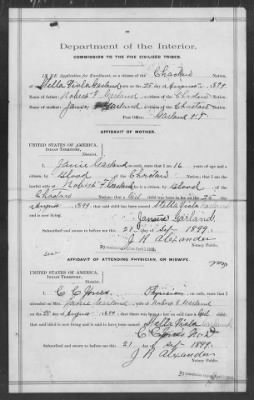 Department of the Interior.
COMMISSION TO THE FIVE CIVILIZED TRIBES.
IN RE Application for Enrollment, as a citizen of the Choctaw Nation,
of Stella Viola Garland, born on the 25 day of August, 1899
Name of Father: Robert F. Garland a citizen of the Choctaw Nation.
Name of Mother: Garland a citizen of the Choctaw Nation.
Post Office: Garland I.T.
AFFIDAVIT OF MOTHER.
UNITED STATES OF AMERICA,
INDIAN TERRITORY,
District.
I, Garland, on oath state that I am 16 years of age and a
citizen by Blood, of the Choctaw Nation; that I am the
lawful wife of Robert F Garland, who is a citizen, by blood of the
Choctaw Nation; that a Girl child was born to me on 25
day of August, 1899, that said child has been named Stella Viola Garland
and is now living.
Garland
Subscribed and sworn to before me this 21 day of Sep 1899.
J. R. Alexander
Notary Public.
AFFIDAVIT OF ATTENDING PHYSICIAN, OR MIDWIFE.
UNITED STATES OF AMERICA,
INDIAN TERRITORY,
District.
I, C C Jones, a Physician, on oath state that I
attended on Mrs. Garland, wife of Robert F Garland
on the 25 day of August, 1899; that there was born to her on said date a Girl
child; that said child is now living and is said to have been named Stella Viola Garland
C C Jones M.D.
Subscribed and sworn to before me this 21 day of Sep 1899.
J. R. Alexander
Notary Public.